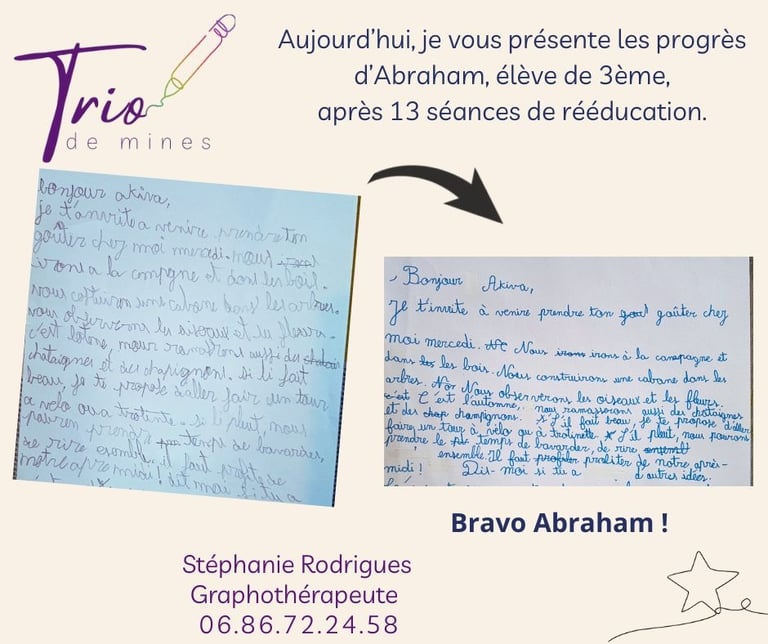 Trio
de mines
Aujourd'hui, je vous présente les progrès
d'Abraham, élève de 3ème,
après 13 séances de rééducation.
bonjour akiva,
je t'anvite a venire prendre ton
goûter chez moi mercedi. nous
irons a la compgne et dans les bois.
vous costuirons une cabane dans les arbres.
nous observerons les oiseaux et lu fleurs.
c'est lotone, nour ramaserons aussi des
châtaignes et des chapignons. si li fait
beau, je te propose d'aller fair un tour
a velo ou a trotinte. si il pleut, nous
pouron prendre temps de bavarder,
de rire ensemble. il faut profite de
notre apre midi! dit moi si tu a
Bonjour Akiva,
Je t'invite à venire prendre ton goûter chez
moi mercedi. Nous irons irons à la campagne et
dans les bois. Nous construirons une cabane dans les
arbres. Nous observerons les oiseaux et les fleurs.
c'est C'est l'automne, nous ramasserons aussi des chataignes
et des chap champignons. S'il fait beau, je te propose d'aller
faire un tour à vélo ou à trotinette. S'il pleut, nous pouvons
prendre le temps de bavarder, de rire
ensemble. Il faut profiter de notre après-
midi! Dis-moi si tu a d'autres idées.
Bravo Abraham !
Stéphanie Rodrigues
Graphothérapeute
06.86.72.24.58